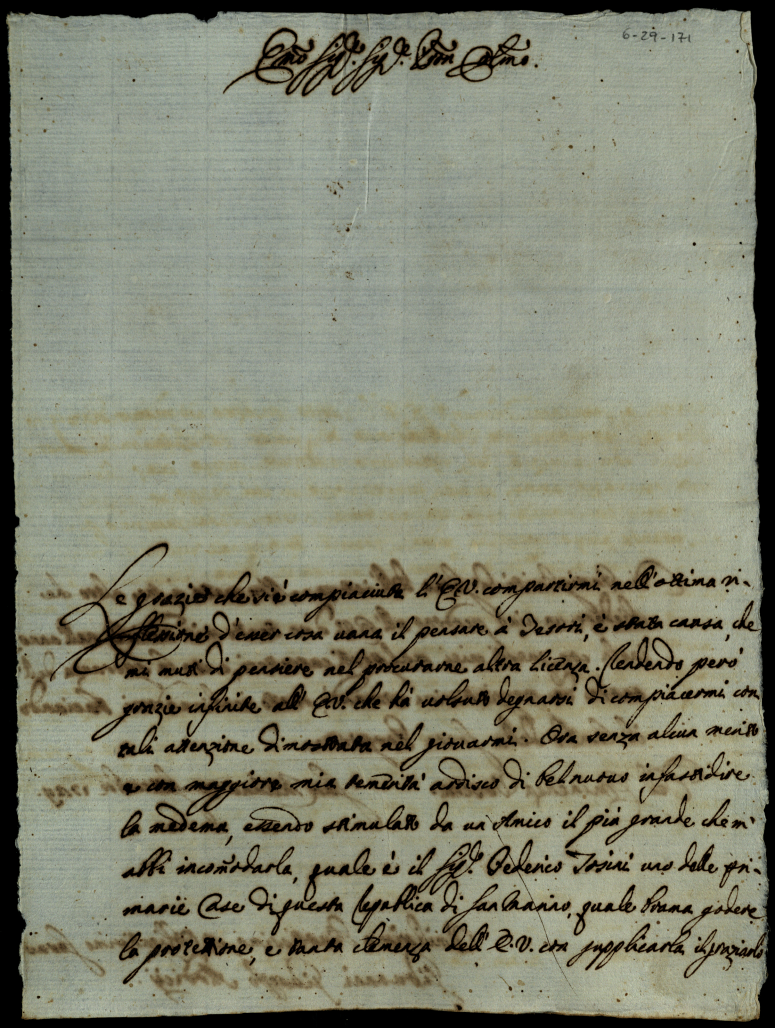 6-29-171
Emo Sigr. Sigr. Pron Colmo.
Le grazie che si è compiaciuta l'E.V. compartirmi nell'ottima ri-
flessione d'esser cosa vana il pensare à Tesori, è stata causa, che
mi muti di pensiere nel procurarne altra licenza. Rendendo però
grazie infinite all'E.V. che hà voluto degnarsi di compiacermi con
tale attenzione dimostrata nel giovarmi. Ora senza alcun merito
e con maggiore mia temerità ardisco di bel nuovo infastidire
la medema, essendo stimolato da un Amico il più grande che m'
abbi incomodarla, quale è il Sigr. Federico Tosini uno delle pri-
marie Case di questa Republica di San Marino, quale brama godere
la protettione, e tanta clemenza dell'E.V. con supplicarla